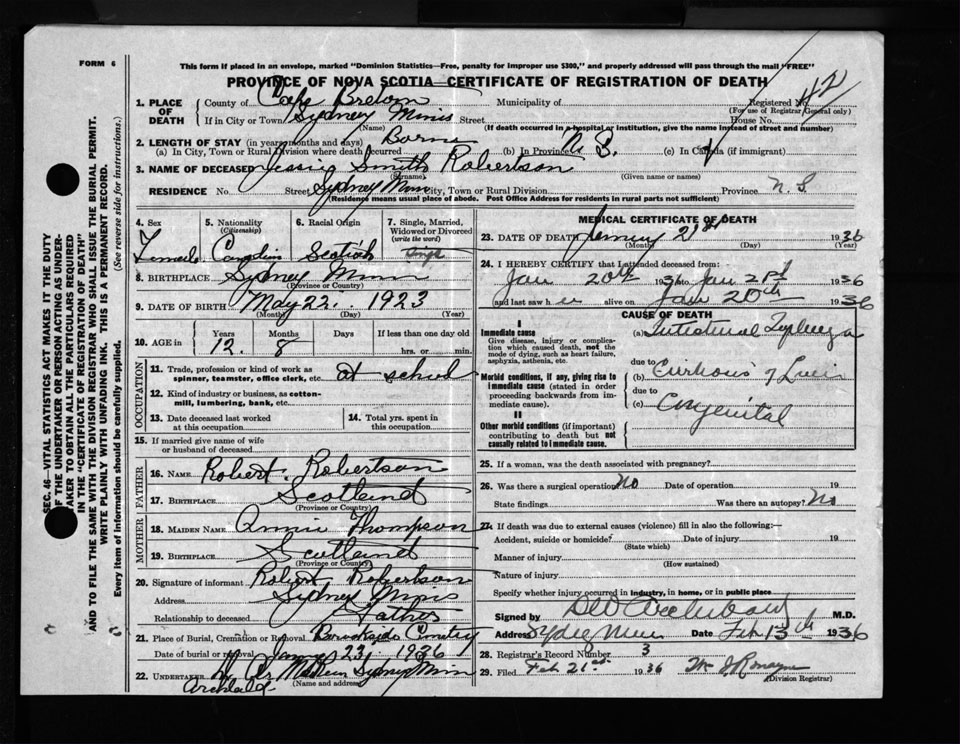 FORM 6
This form if placed in an envelope, marked "Dominion Statistics—Free, penalty for improper use $300," and properly addressed will pass through the mail "FREE"
PROVINCE OF NOVA SCOTIA—CERTIFICATE OF REGISTRATION OF DEATH
1. PLACE OF DEATH
County of Cape Breton Municipality of Registered No.
(For use of Registrar General only)
If in City or Town Sydney Mines Street House No.
(Name) (If death occurred in a hospital or institution, give the name instead of street and number)
2. LENGTH OF STAY (in years, months and days)
(a) In City, Town or Rural Division where death occurred Born (b) In Province N. S. (c) In Canada (if immigrant)
3. NAME OF DECEASED Jessie Smith Robertson
(Surname) (Given name or names)
RESIDENCE No. Street Sydney Mines City, Town or Rural Division Province N. S.
(Residence means usual place of abode. Post Office Address for residents in rural parts not sufficient)
4. Sex 5. Nationality (Citizenship) 6. Racial Origin 7. Single, Married, Widowed or Divorced (write the word)
Female Canadian Scotish Single
8. BIRTHPLACE Sydney Mines
(Province or Country)
9. DATE OF BIRTH May 22. 1923
(Month) (Day) (Year)
10. AGE in Years Months Days If less than one day old
12. 8 hrs. or min.
OCCUPATION
11. Trade, profession or kind of work as spinner, teamster, office clerk, etc. at school
12. Kind of industry or business, as cotton-mill, lumbering, bank, etc.
13. Date deceased last worked at this occupation
14. Total yrs. spent in this occupation
15. If married give name of wife or husband of deceased
FATHER
16. NAME Robert. Robertson
17. BIRTHPLACE Scotland
(Province or Country)
MOTHER
18. MAIDEN NAME Annie Thompson
19. BIRTHPLACE Scotland
(Province or Country)
20. Signature of informant Robert Robertson
Address Sydney Mines
Relationship to deceased Father
21. Place of Burial, Cremation or Removal Brookside Cemetry
Date of burial or removal January 23, 1936
22. UNDERTAKER Sydney Mines
(Name and address)
MEDICAL CERTIFICATE OF DEATH
23. DATE OF DEATH January 21st 1936
(Month) (Day) (Year)
24. I HEREBY CERTIFY that I attended deceased from:
Jan 20th 1936 Jan 21st 1936
and last saw her alive on Jan 20th 1936
CAUSE OF DEATH
I
Immediate cause
Give disease, injury or complication which caused death, not the mode of dying, such as heart failure, asphyxia, asthenia, etc.
(a) Intestinal
due to
Morbid conditions, if any, giving rise to immediate cause (stated in order proceeding backwards from immediate cause).
(b) Cirrhosis of Liver
due to
(c) Congenital
II
Other morbid conditions (if important) contributing to death but not causally related to immediate cause.
25. If a woman, was the death associated with pregnancy?
26. Was there a surgical operation? No Date of operation 19
State findings Was there an autopsy? No
27. If death was due to external causes (violence) fill in also the following:—
Accident, suicide or homicide? Date of injury 19
(State which)
Manner of injury
(How sustained)
Nature of injury
Specify whether injury occurred in industry, in home, or in public place
Signed by Archibald M.D.
Address Sydney Mines Date Feb 13th 1936
28. Registrar's Record Number 3
29. Filed Feb 21st 1936
(Division Registrar)
SEC. 46—VITAL STATISTICS ACT MAKES IT THE DUTY
OF THE UNDERTAKER OR PERSON ACTING AS UNDER-
TAKER TO OBTAIN ALL THE PARTICULARS REQUIRED
IN THE "CERTIFICATE OF REGISTRATION OF DEATH"
AND TO FILE THE SAME WITH THE DIVISION REGISTRAR WHO SHALL ISSUE THE BURIAL PERMIT.
WRITE PLAINLY WITH UNFADING INK. THIS IS A PERMANENT RECORD.
Every item of information should be carefully supplied. (See reverse side for instructions.)